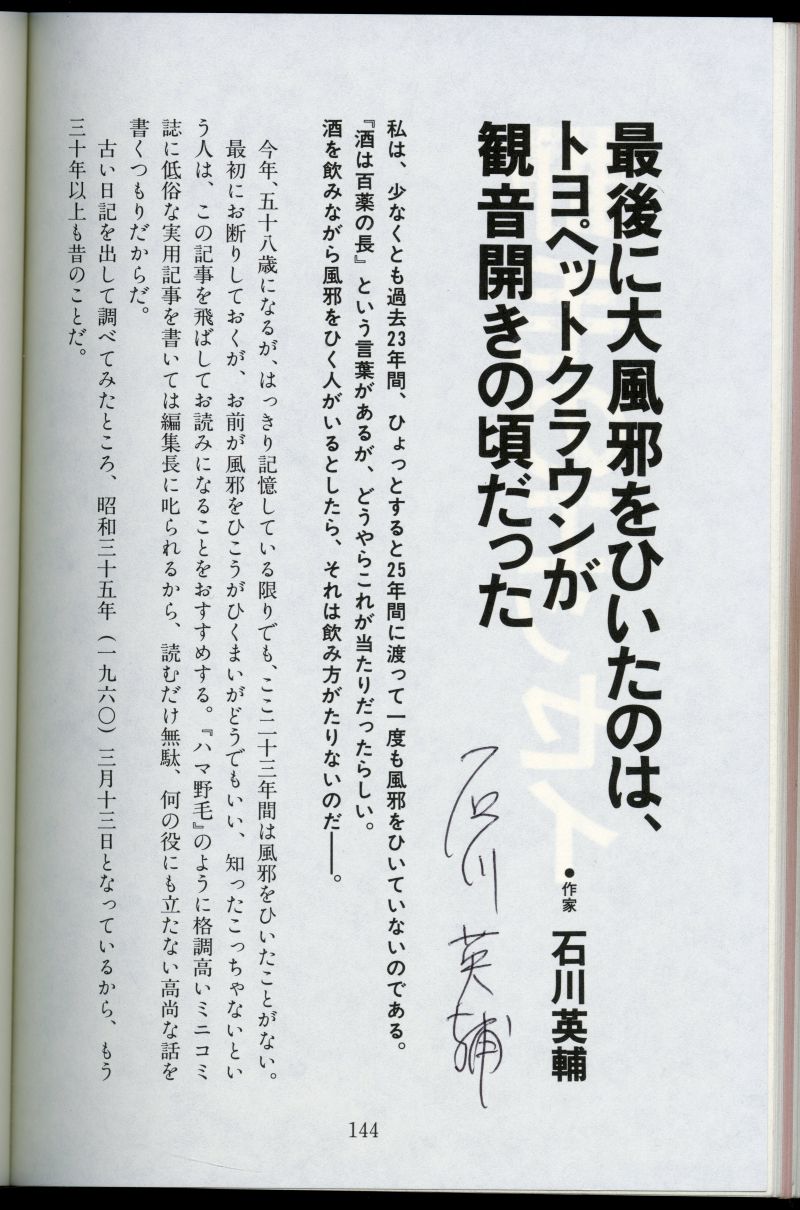 最後に大風邪をひいたのは、
トヨペットクラウンが
観音開きの頃だった
●作家 石川英輔
石川英輔
私は、少なくとも過去23年間、ひょっとすると25年間に渡って一度も風邪をひいていないのである。
『酒は百薬の長』という言葉があるが、どうやらこれが当たりだったらしい。
酒を飲みながら風邪をひく人がいるとしたら、それは飲み方がたりないのだ――。
今年、五十八歳になるが、はっきり記憶している限りでも、ここ二十三年間は風邪をひいたことがない。
最初にお断りしておくが、お前が風邪をひこうがひくまいがどうでもいい、知ったこっちゃないとい
う人は、この記事を飛ばしてお読みになることをおすすめする。『ハマ野毛』のように格調高いミニコミ
誌に低俗な実用記事を書いては編集長に叱られるから、読むだけ無駄、何の役にも立たない高尚な話を
書くつもりだからだ。
古い日記を出して調べてみたところ、昭和三十五年（一九六〇）三月十三日となっているから、もう
三十年以上も昔のことだ。
144